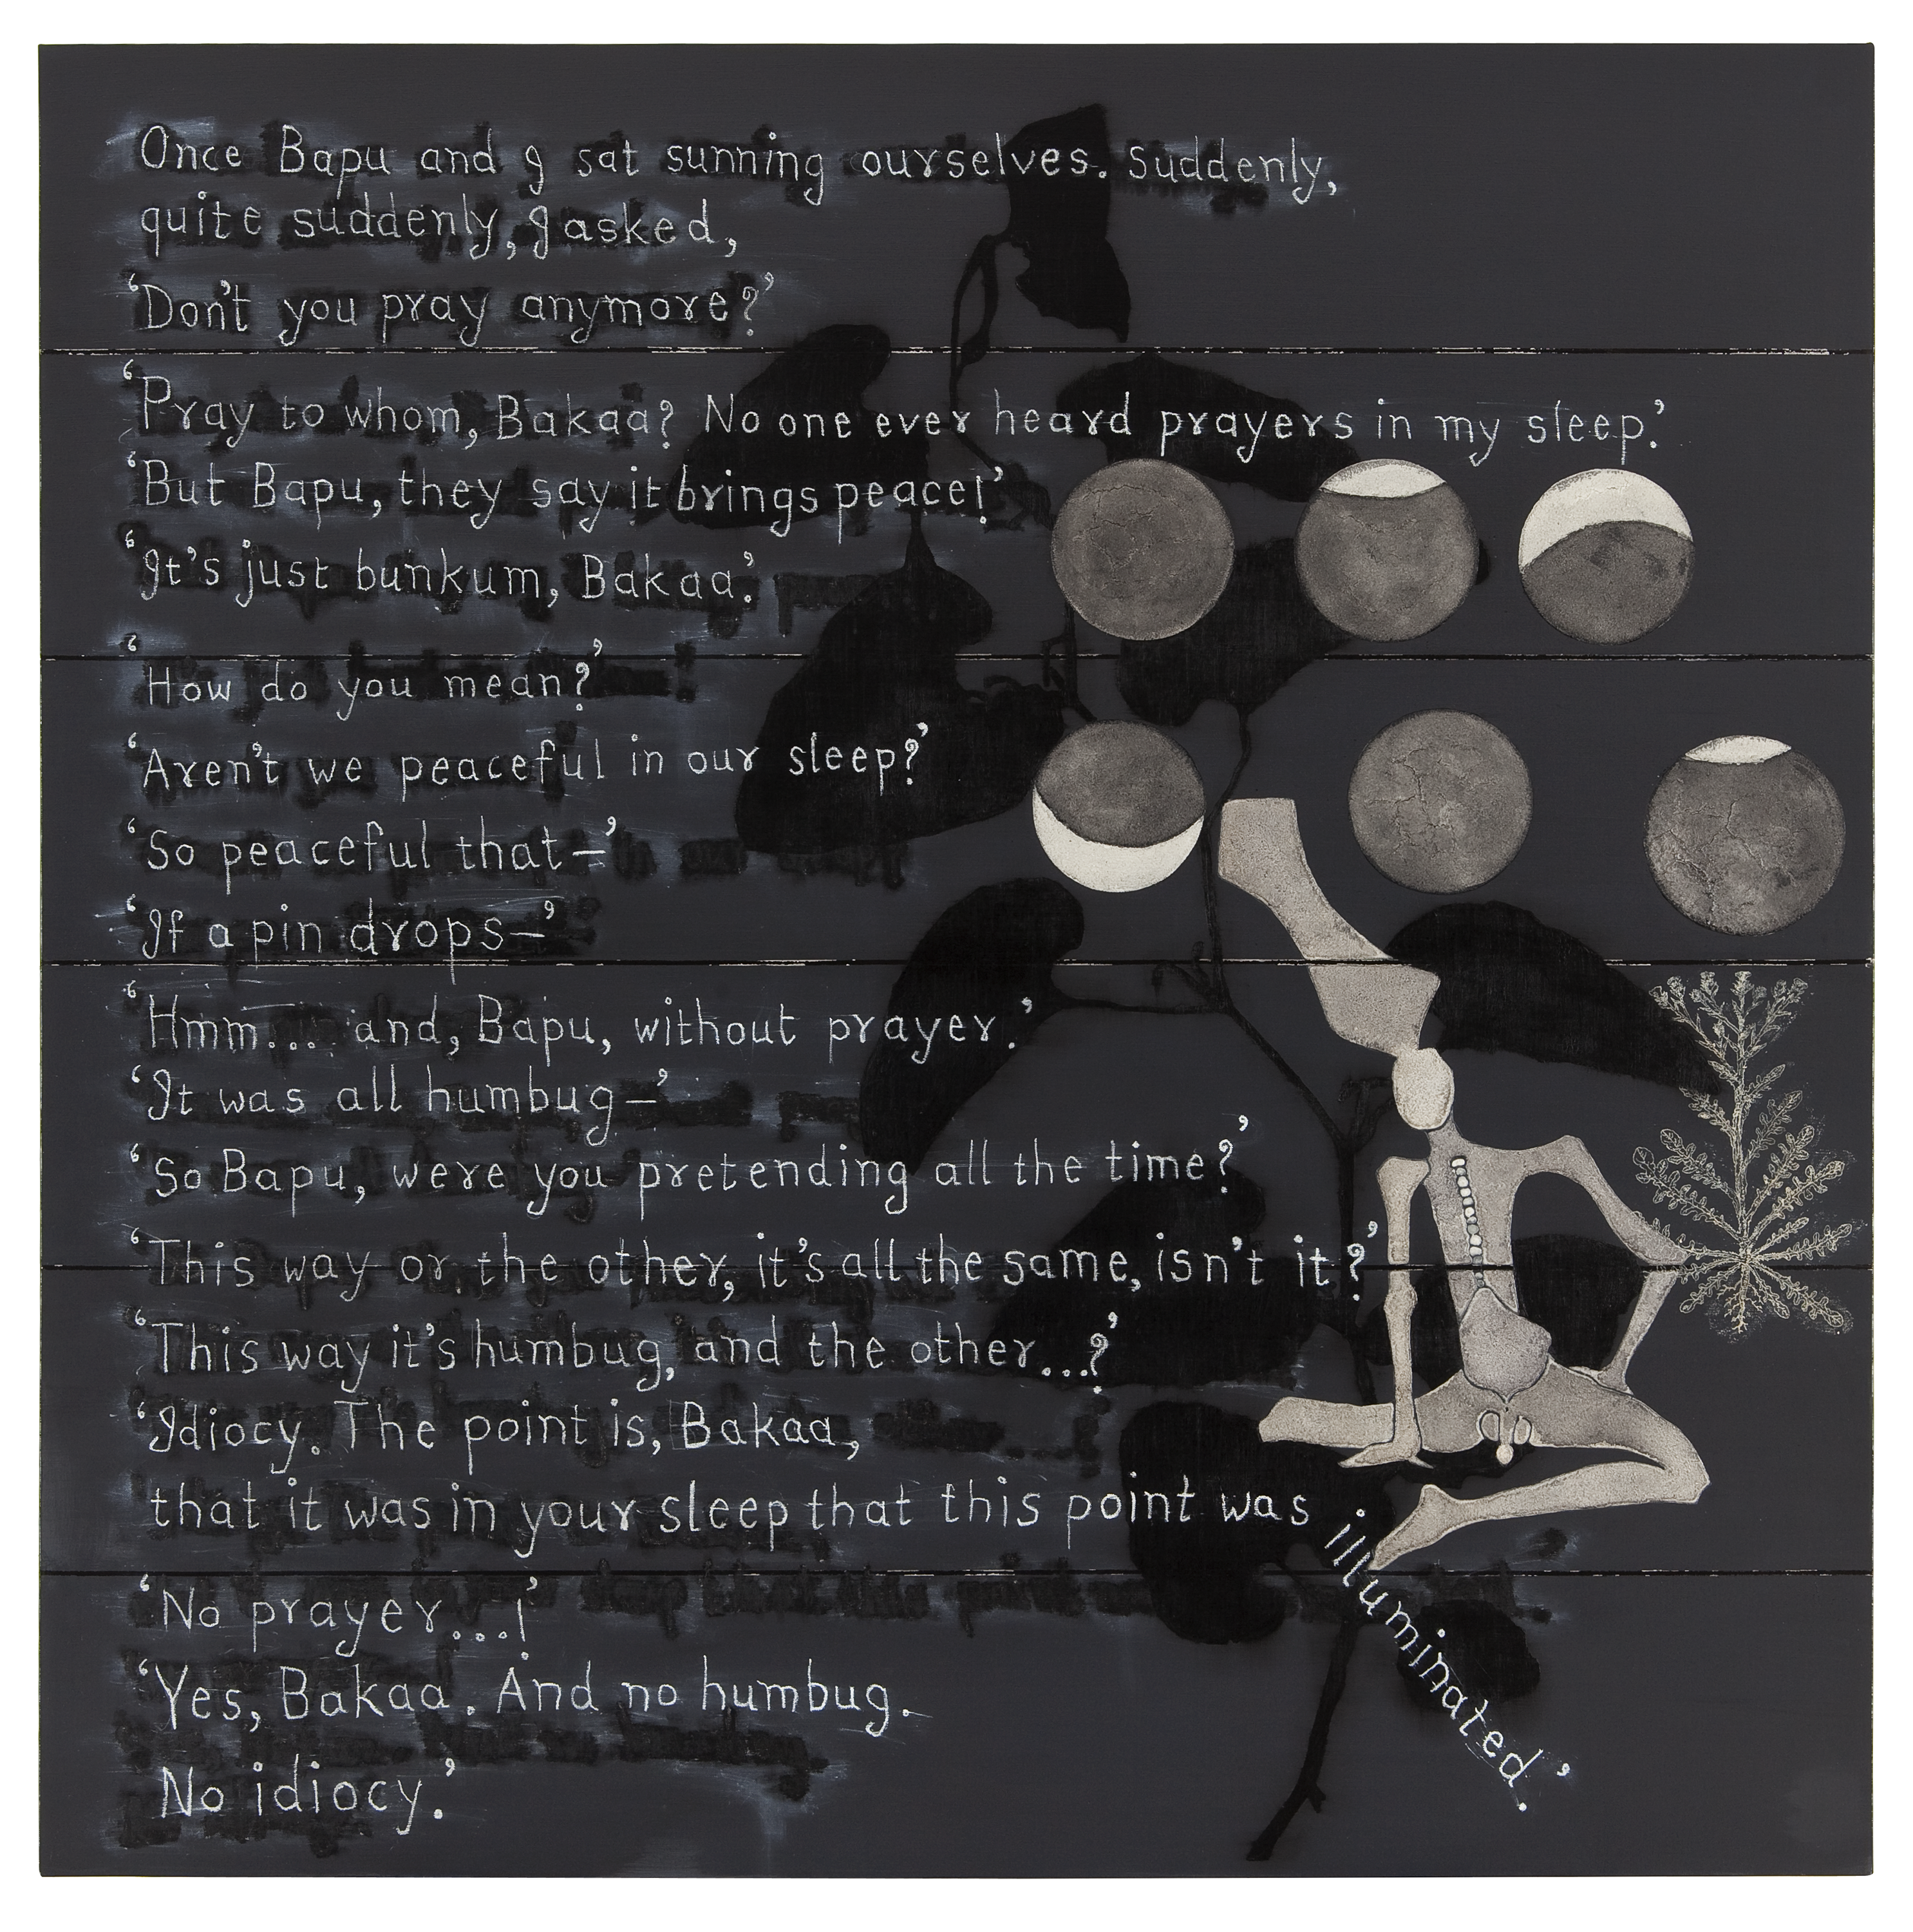 Once Bapu and I sat sunning ourselves. Suddenly,
quite suddenly, I asked,
‘Don't you pray anymore?’
‘Pray to whom, Bakaa? No one ever heard prayers in my sleep.’
‘But Bapu, they say it brings peace!’
‘It's just bunkum, Bakaa.’
‘How do you mean?’
‘Aren't we peaceful in our sleep?’
‘So peaceful that–’
‘If a pin drops–’
‘Hmm... and, Bapu, without prayer.’
‘It was all humbug–’
‘So Bapu, were you pretending all the time?’
‘This way or the other, it's all the same, isn't it?’
‘This way it's humbug, and the other...?’
‘Idiocy. The point is, Bakaa,
that it was in your sleep that this point was illuminated.’
‘No prayer...!’
‘Yes, Bakaa. And no humbug.
No idiocy.’